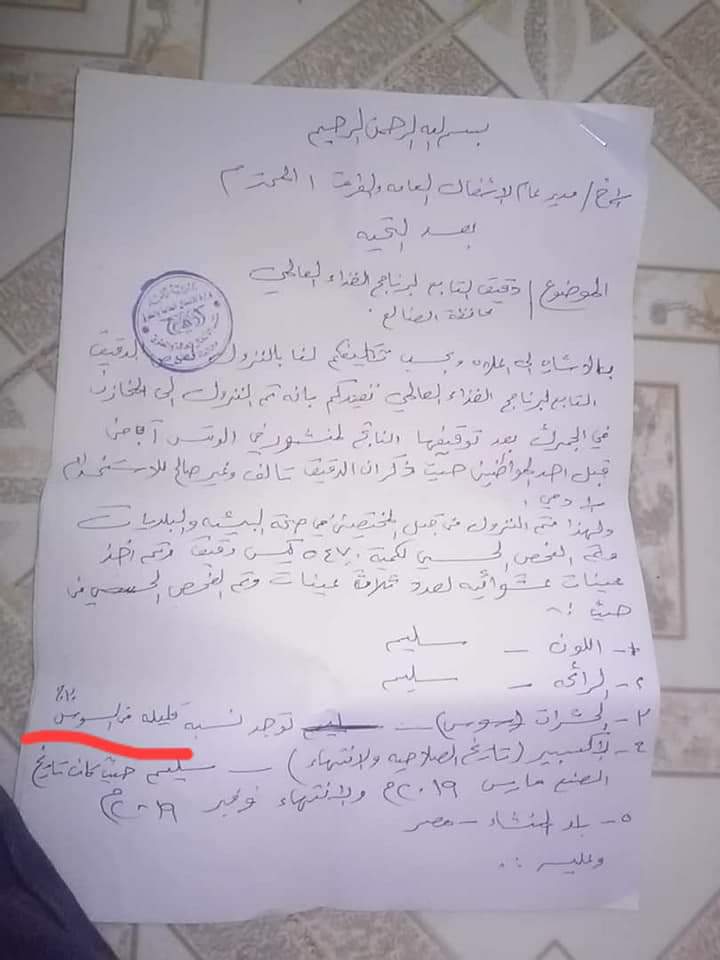 بسم الله الرحمن الرحيم
الأخ / مدير عام الاشغال العامه والطرقات المحترم
بعد التحيه
الموضوع / دقيق التابع لبرنامج الغذاء العالمي
محافظة الضالع .
بالاشاره الى اعلاه وبحسب تكليفكم لنا بالنزول الدقيق
التابع لبرنامج الغذاء العالمي نفيدكم بانه تم النزول الى المخازن
في الجمرك بعد توقيفها الناتج لمنشور في الوتس آب من
قبل احد المواطنين حيث ذكر ان الدقيق تالف وغير صالح للاستخدام
الادمي .
ولهذا فتم النزول من قبل المختصين في صحة البيئه والبلديات
وتم الفحص الحسي لكمية ٥٤٧٠ كيس دقيق وتم اخذ
عينات عشوائيه لعدد ثلاثة عينات وتم الفحص الحسي من
حيث :-
١- اللون - سليم
٢- الرائحه - سليم
٣- الحشرات (سوس) - توجد نسبة قليله من السوس ١٠٪
٤- الاكسبير (تاريخ الصلاحيه والانتهاء) - سليم حيث كان تاريخ
الصنع مارس ٢٠١٩م والانتهاء نوفمبر ٢٠١٩م
٥- بلد المنشاء - مصر
وعليه :.